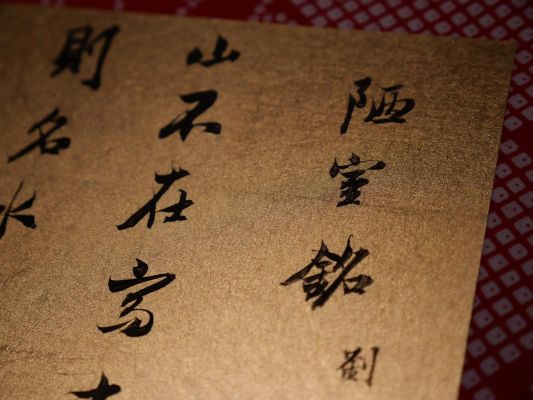 陋室銘
劉
山不在高
則名水